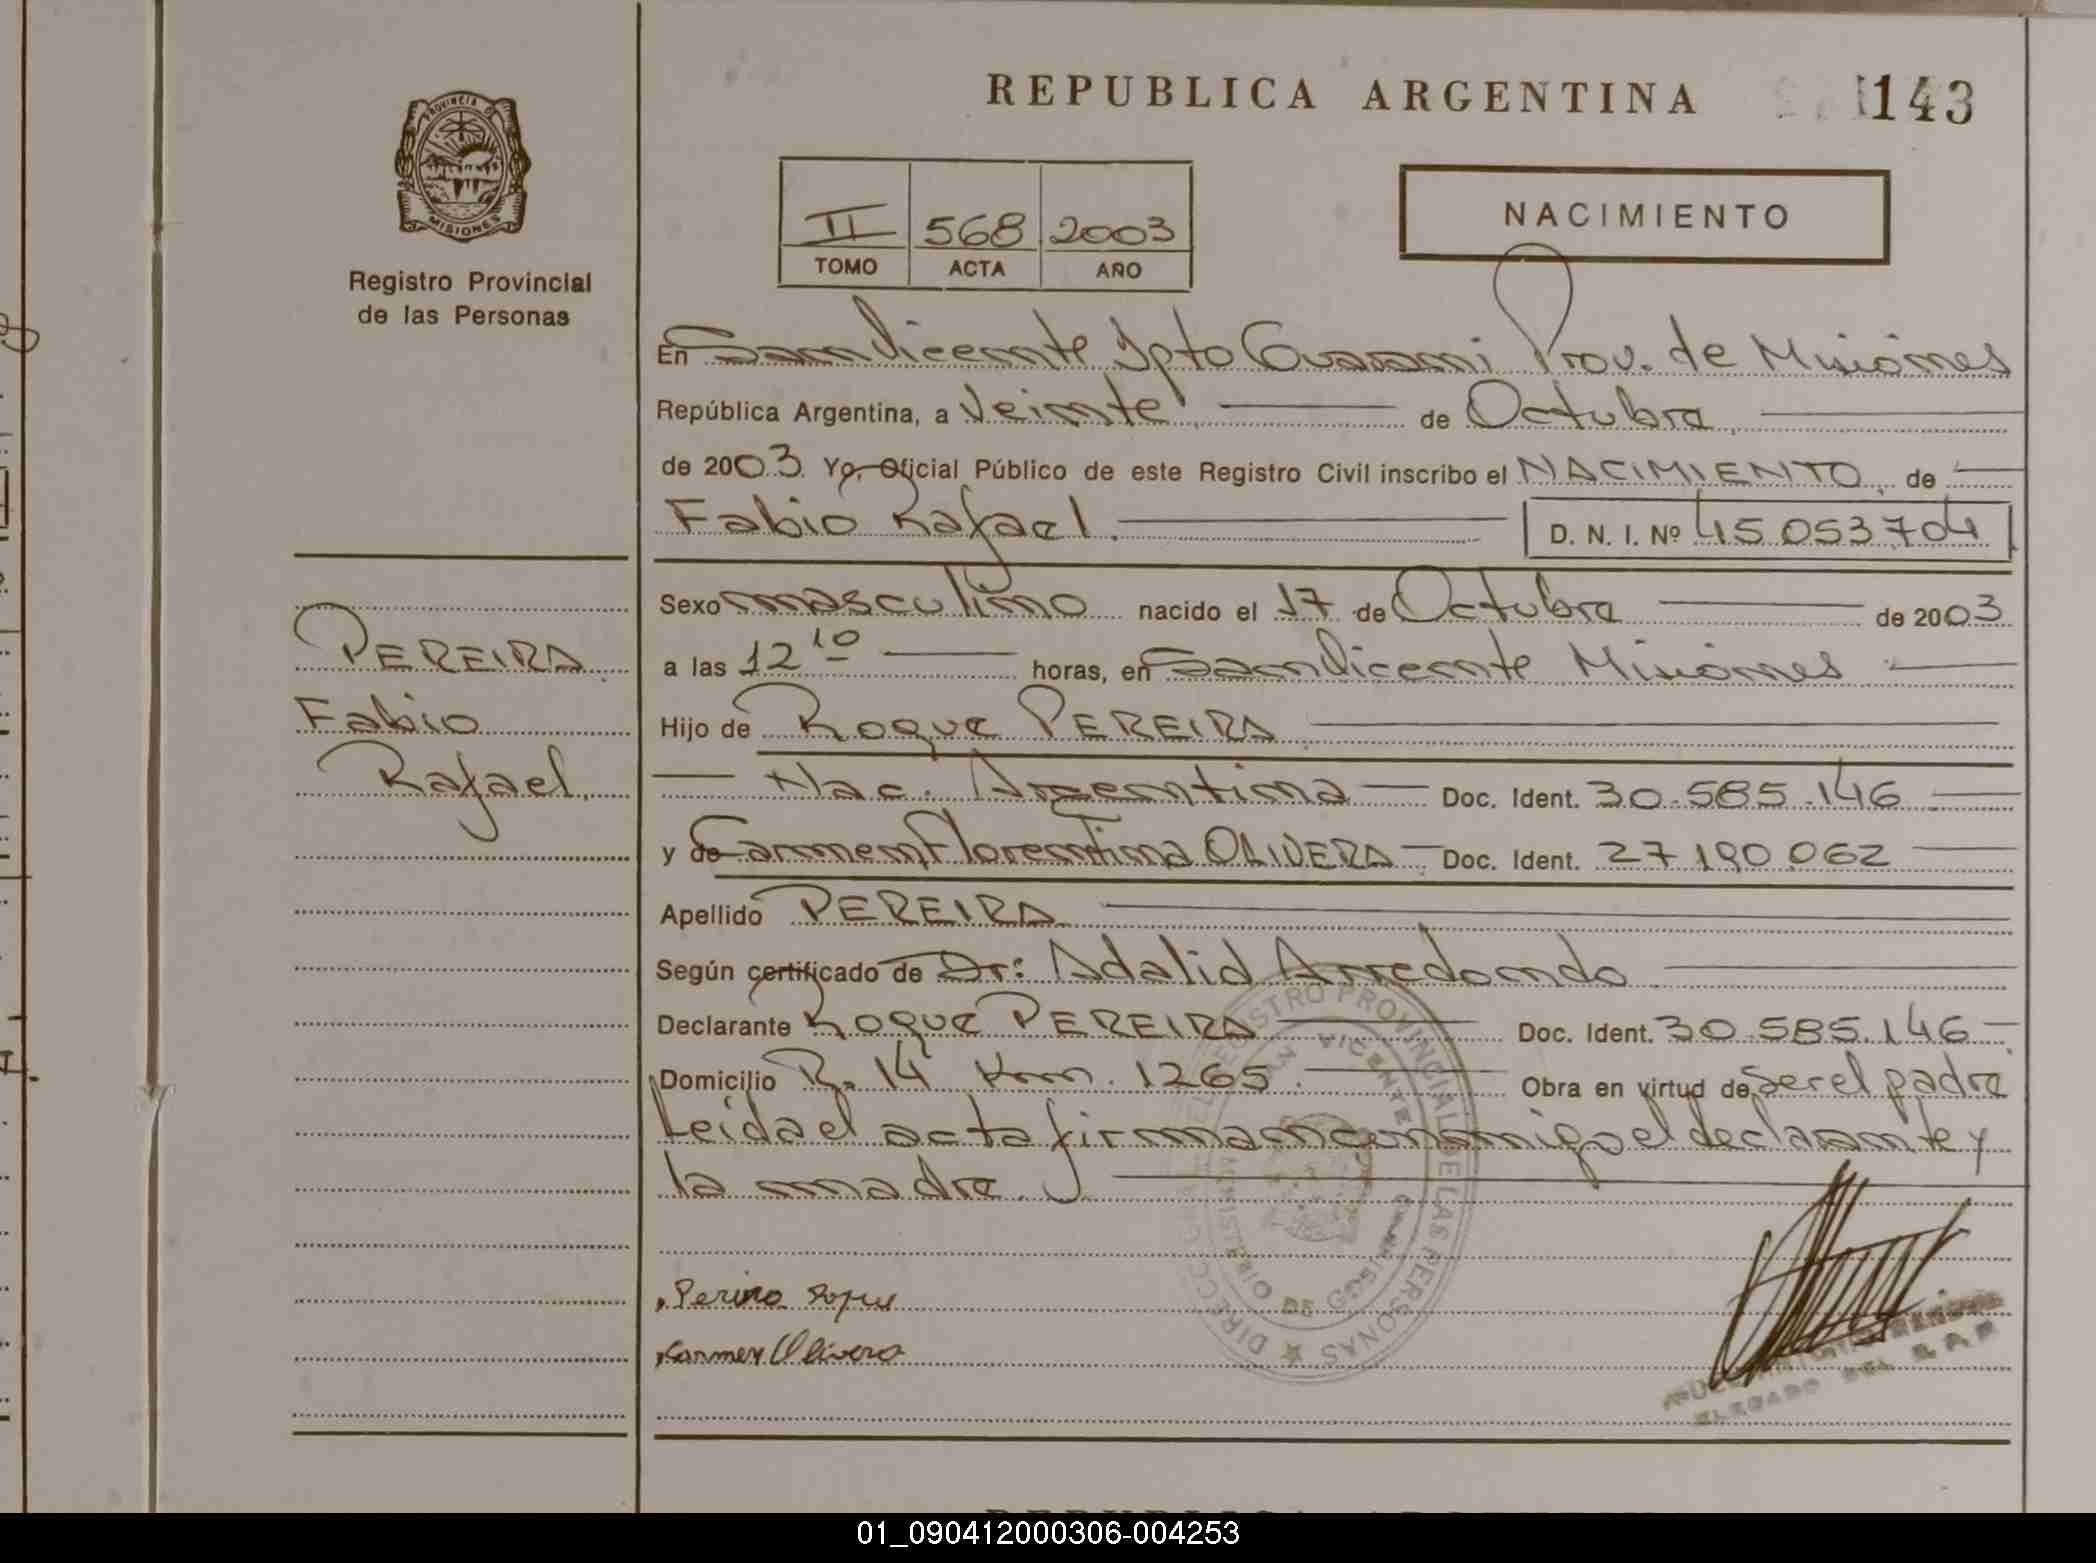 REPUBLICA ARGENTINA
143
PROVINCIA DE
MISIONES
Registro Provincial
de las Personas
II 568 2003
TOMO ACTA AÑO
NACIMIENTO
En San Vicente Dpto Guarani Prov. de Misiones
República Argentina, a Veinte de Octubre
de 2003 Yo, Oficial Público de este Registro Civil inscribo el NACIMIENTO de
Fabio Rafael. D. N. I. Nº 45.053.704
Sexo masculino nacido el 17 de Octubre de 2003
a las 12 10 horas, en San Vicente Misiones
Hijo de Roque PEREIRA
Nac. Argentina Doc. Ident. 30.585.146
y de Carmen Florentina OLIVERA Doc. Ident. 27.190.062
Apellido PEREIRA
Según certificado de Dr: Adalid Arredondo
Declarante Roque PEREIRA Doc. Ident. 30.585.146
Domicilio R. 14 Km. 1265. Obra en virtud de Ser el padre
Leida el acta firman conmigo el declarante y
la madre.
PEREIRA
Fabio
Rafael.
Carmen Olivera
DIRECCION REGISTRO PROVINCIAL DE LAS PERSONAS
SAN VICENTE
MINISTERIO DE GOBIERNO
DEL R.P.P.
REPUBLICA ARGENTINA
01_090412000306-004253